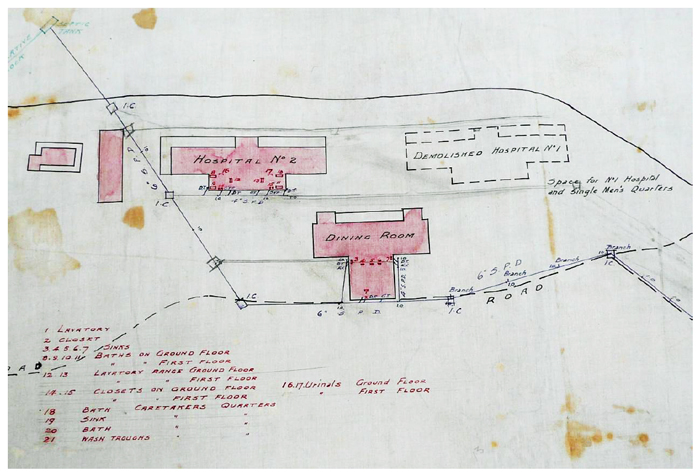 TANK
I.C
HOSPITAL Nº 2
DEMOLISHED HOSPITAL Nº 1
Space for Nº1 Hospital
and Single Men's Quarters
I.C
4" S.P.D
DINING ROOM
6" S.P.D
Branch
Branch
Branch
Branch
I.C
ROAD
I.C
I.C
6" S P D
1 LAVATORY
2 CLOSET
3.4.5.6.7 SINKS
8.9.10.11 BATHS ON GROUND FLOOR
" " FIRST FLOOR
12 13 LAVATORY RANGE GROUND FLOOR
" " FIRST FLOOR
14.15 CLOSETS ON GROUND FLOOR
" " FIRST FLOOR
16.17. Urinals Ground Floor
" FIRST FLOOR
18 BATH CARETAKERS QUARTERS
19 SINK " "
20 BATH " "
21 WASH TROUGHS "